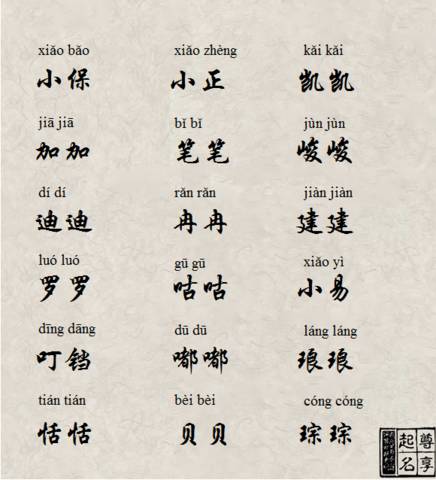 xiǎo bǎo xiǎo zhèng kǎi kǎi
小保 小正 凯凯
jiā jiā bǐ bǐ jùn jùn
加加 笔笔 峻峻
dí dí rǎn rǎn jiàn jiàn
迪迪 冉冉 建建
luó luó gū gū xiǎo yì
罗罗 咕咕 小易
dīng dāng dū dū láng láng
叮铛 嘟嘟 琅琅
tián tián bèi bèi cóng cóng
恬恬 贝贝 琮琮
尊享
起名